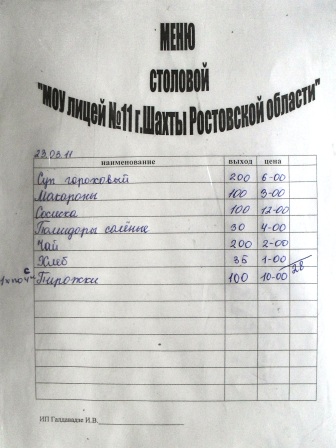 МЕНЮ
СТОЛОВОЙ
"МОУ лицей №11 г.Шахты Ростовской области"
23.03.11
наименование выход цена
Суп гороховый 200 6-00
Макароны 100 3-00
Сосиска 100 12-00
Помидоры солёные 30 4-00
Чай 200 2-00
Хлеб 35 1-00
28
Пирожки 100 10-00
ИП Галдавадзе И.В.